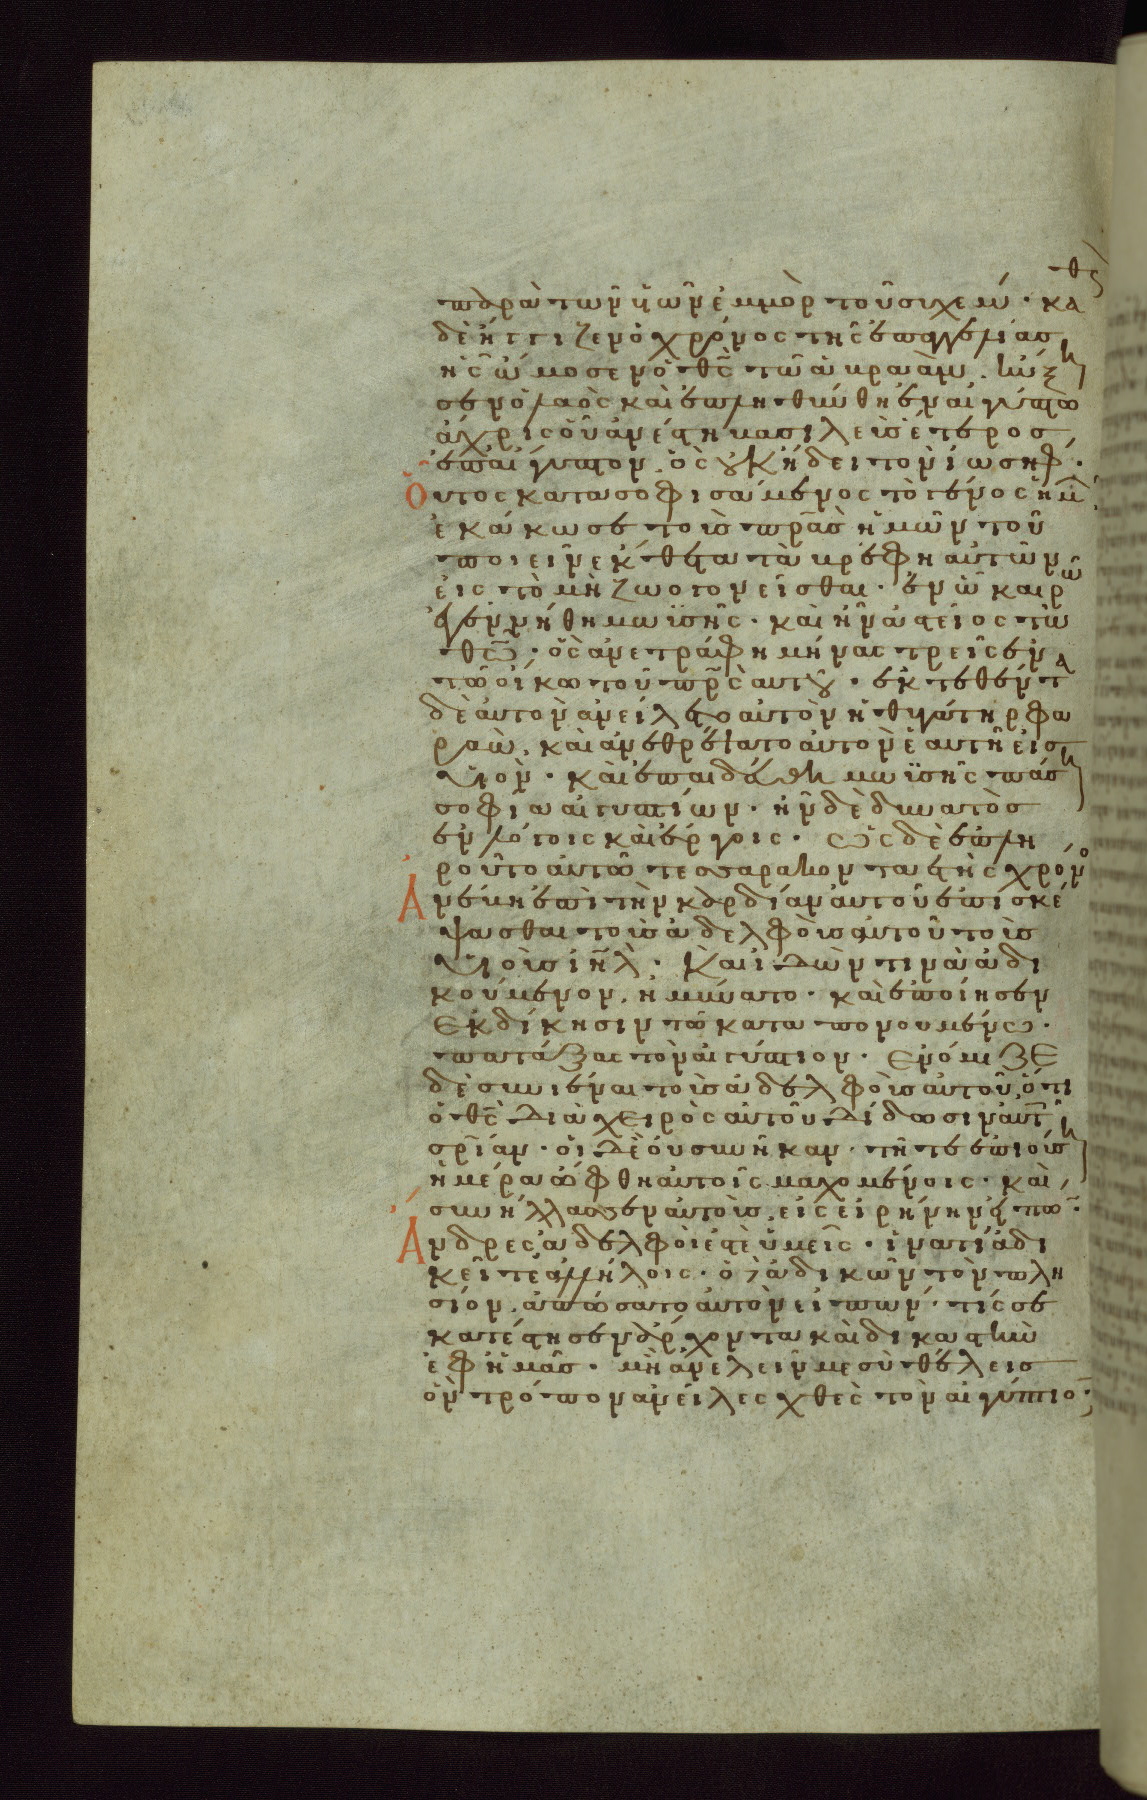 παρὰ τῶν υἱῶν ἐμμὸρ τοῦ συχέμ· καθὼς
δὲ ἤγγιζεν ὁ χρόνος τῆς ἐπαγγελίας
ἧς ὤμοσεν ὁ θς τῶ ἀβραάμ, ηὔξη
σεν ὁ λαὸς καὶ ἐπληθύνθη ἐν αἰγύπτω
ἄχρις οὗ ἀνέστη βασιλεὺς ἕτερος
ἐπ αἴγυπτον, ὃς οὐκ ἤδει τὸν ἰωσήφ·
Οὗτος κατασοφισάμενος τὸ γένος ἡμῶν
ἐκάκωσε τοὺς πρας ἡμῶν τοῦ
ποιεῖν ἔκθετα τὰ βρέφη αὐτῶν
εἰς τὸ μὴ ζωογονεῖσθαι· ἐν ὧ καιρῶ
ἐγεννήθη μωϊσῆς· καὶ ἦν ἀστεῖος τῶ
θω· ὃς ἀνετράφη μῆνας τρεῖς ἐν
τῶ οἴκω τοῦ πρς αὐτοῦ· ἐκτεθέντα
δὲ αὐτὸν ἀνείλετο αὐτὸν ἡ θυγάτηρ φα
ραὼ, καὶ ἀνεθρέψατο αὐτὸν ἑαυτῆ εἰς
υἱόν· καὶ ἐπαιδεύθη μωϊσῆς πάση
σοφία αἰγυπτίων· ἦν δὲ δυνατὸς
ἐν λόγοις καὶ ἔργοις· ὡς δὲ ἐπλη
ροῦτο αὐτῶ τεσσαρακονταετὴς χρόνος
Ἀνέβη ἐπὶ τὴν καρδίαν αὐτοῦ ἐπισκέ
ψασθαι τοὺς ἀδελφοὺς αὐτοῦ τοὺς
υἱοὺς ιηλ· Καὶ ἰδών τινα ἀδι
κούμενον, ἠμύνατο· καὶ ἐποίησεν
ἐκδίκησιν τῶ καταπονουμένω·
πατάξας τὸν αἰγύπτιον· Ἐνόμιζε
δὲ συνιέναι τοὺς ἀδελφοὺς αὐτοῦ, ὅτι
ὁ θς διὰ χειρὸς αὐτοῦ δίδωσιν αὐτοῖς
σριαν· οἱ δὲ οὐ συνῆκαν· τῆ τε ἐπιούση
ἡμέρα ὤφθη αὐτοῖς μαχομένοις· καὶ
συνήλλασσεν αὐτοὺς εἰς εἰρήνην εἰπών·
Ἄνδρες ἀδελφοί ἐστὲ ὑμεῖς· ἱνατί ἀδι
κεῖτε ἀλλήλοις· ὁ δὲ ἀδικῶν τὸν πλη
σίον, ἀπώσατο αὐτὸν εἰπών· τίς σε
κατέστησεν ἄρχοντα καὶ δικαστὴν
ἐφ ἡμᾶς· μὴ ἀνελεῖν με σὺ θέλεις
ὃν τρόπον ἀνεῖλες χθὲς τὸν αἰγύπτιον·